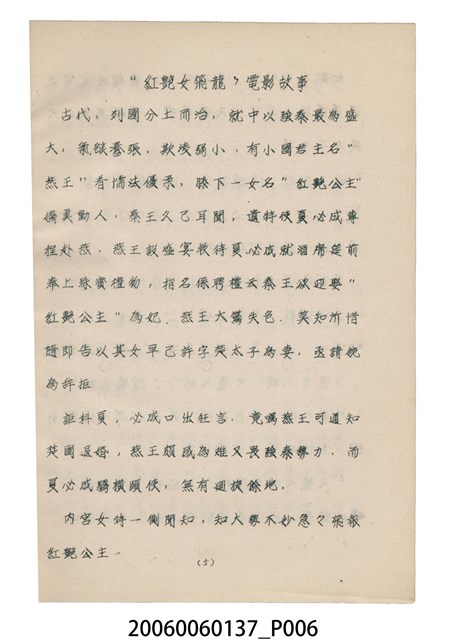 "紅艷女飛龍"電影故事
古代,列國分土而治,就中以強秦最為盛
大,氣燄囂張,欺凌弱小,有小國君主名"
燕王"者懦怯優柔,膝下一女名"紅艷公主"
嬌美動人,秦王久已耳聞,遣特使夏必成專
程赴燕,燕王設盛宴款待夏必成就酒席筵前
奉上珠寶禮物,指名係聘禮云秦王欲迎娶"
紅艷公主"為妃.燕王大驚失色.莫知所措
隨即告以其女早已許字楚太子為妻,丞請婉
為辞拒
詎料夏,必成口出狂言,竟嘱燕王可通知
楚國退婚,燕王頗感為难又畏強秦势力,而
夏必成驕橫頭使,無有迴旋餘地.
內宮女侍一側聞知,知大势不妙急々飛報
紅艷公主.
(5)
20060060137_P006